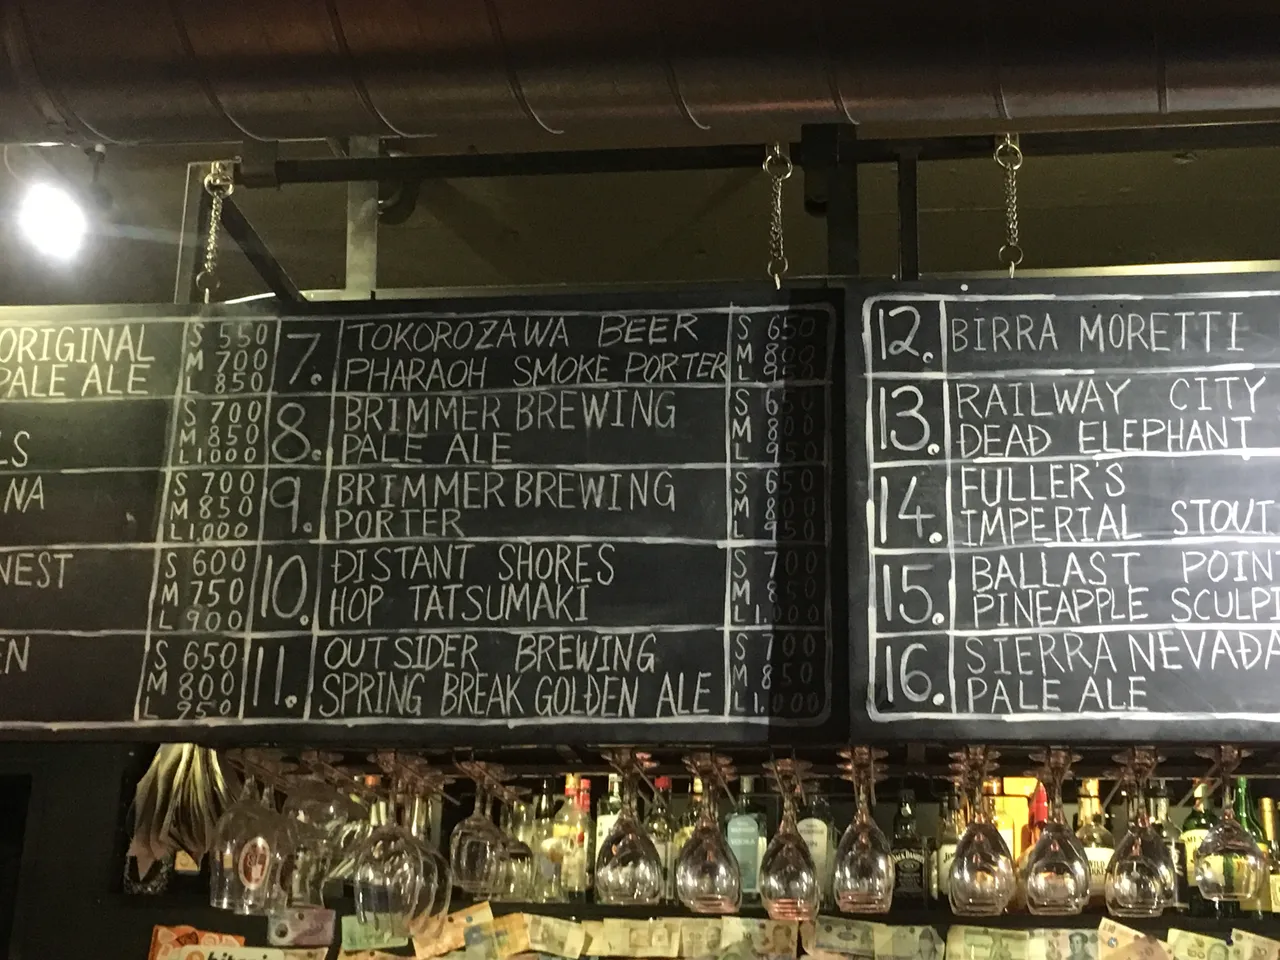 ORIGINAL
PALE ALE
S 550
M 700
L 850
LS
S 700
M 850
L 1,000
NA
S 700
M 850
L 1,000
NEST
S 600
M 750
L 900
EN
S 650
M 800
L 950
7. TOKOROZAWA BEER
PHARAOH SMOKE PORTER
S 650
M 800
L 950
8. BRIMMER BREWING
PALE ALE
S 650
M 800
L 950
9. BRIMMER BREWING
PORTER
S 650
M 800
L 950
10. DISTANT SHORES
HOP TATSUMAKI
S 700
M 850
L 1,000
11. OUTSIDER BREWING
SPRING BREAK GOLDEN ALE
S 700
M 850
L 1,000
12. BIRRA MORETTI
13. RAILWAY CITY
DEAD ELEPHANT
14. FULLER'S
IMPERIAL STOUT
15. BALLAST POIN
PINEAPPLE SCULPI
16. SIERRA NEVADA
PALE ALE
JACK DANIEL